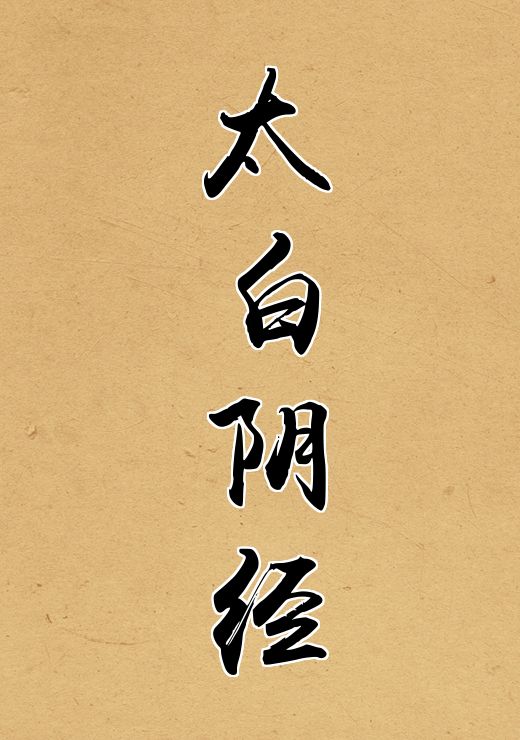 太白阴经